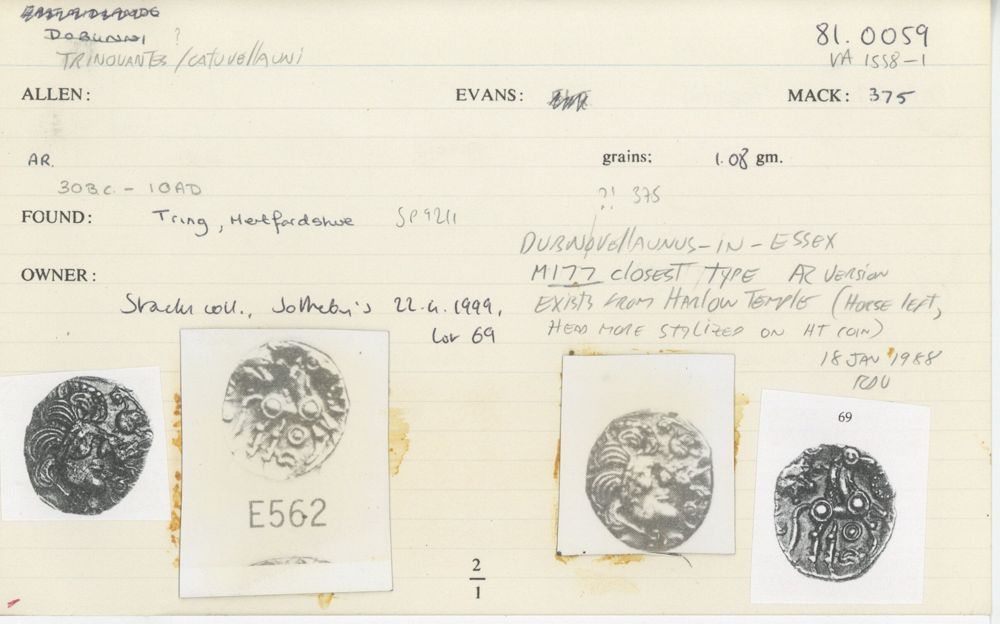 DOBUNNI ?
TRINOVANTES / CATUVELLAUNI
81.0059
VA 1558-1
ALLEN:
EVANS:
MACK: 375
AR.
grains: 1.08 gm.
30 B.C. - 10 AD
?! 375
FOUND: Tring, Hertfordshire SP9211
DUBNOVELLAUNUS-IN-ESSEX
OWNER:
M177 CLOSEST TYPE AR VERSION
EXISTS FROM HARLOW TEMPLE (HORSE LEFT,
HEAD MORE STYLIZED ON HT COIN)
coll., Sotheby's 22.4.1999,
Lot 69
18 JAN 1988
69
E562
2
1